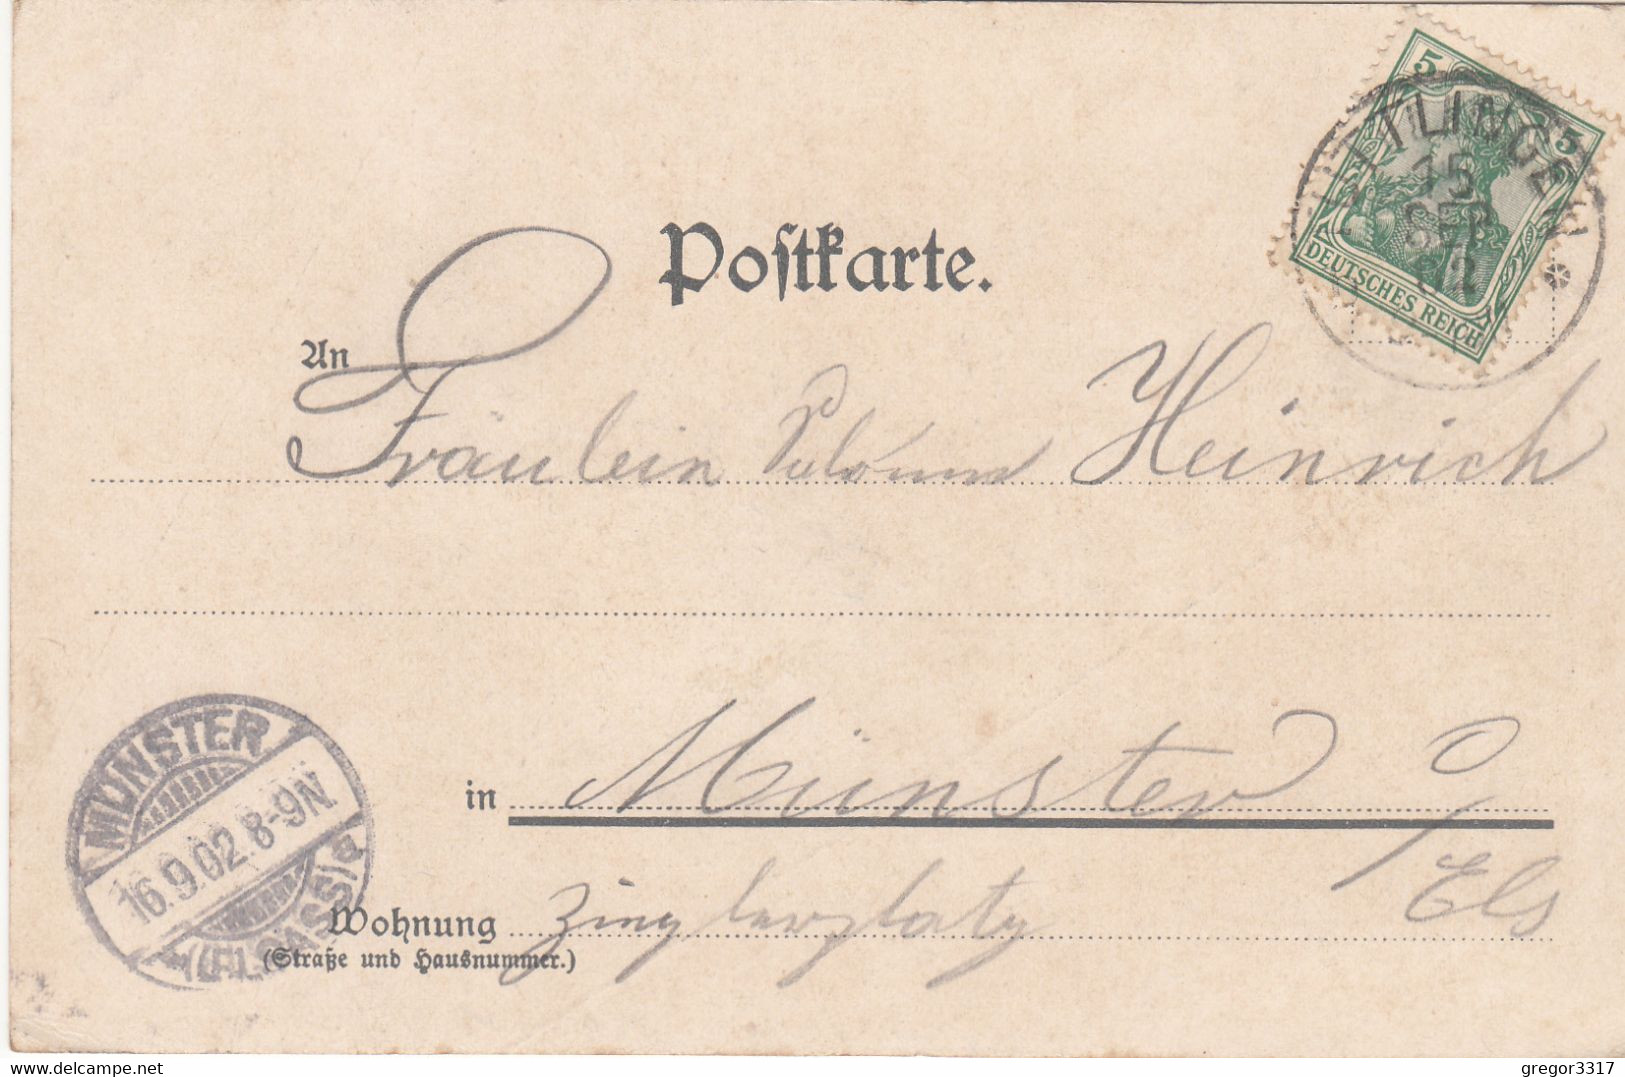 5 5
15
SEP
02
DEUTSCHES REICH
Postkarte.
An
Fräulein Heinrich
in Münster
i/
Els
MÜNSTER
16.9.02.8-9N.
(ELSASS)
Wohnung
(Straße und Hausnummer.)
www.delcampe.net
gregor3317